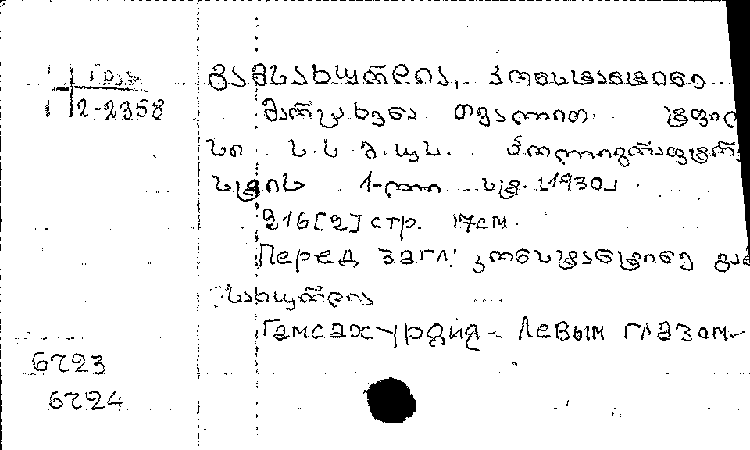 Груз.
2-2358
გამსახურდია, კონსტანტინე
მარცხენა თვალით. ტფილ
სი ს.ს.მ.უ.ს. პოლიგრაფტრ
სტის 1-ლი სტ. [1930]
216 [2] стр. 17см.
Перед загл: კონსტანტინე გამ
სახურდია
Гамсахурдия - Левым глазом
6723
6724